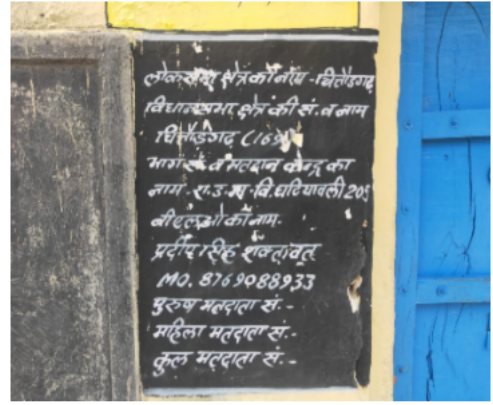 लोकसभा क्षेत्र का नाम - चितौडगढ़
विधानसभा क्षेत्र की सं. व नाम
चितौडगढ़ (169)
भाग सं. व मतदान केन्द्र का
नाम - रा.उ.मा.वि. घटियावली 205
बीएलओ का नाम -
प्रदीप सिंह शक्तावत
MO. 8769088933
पुरुष मतदाता सं. -
महिला मतदाता सं. -
कुल मतदाता सं. -